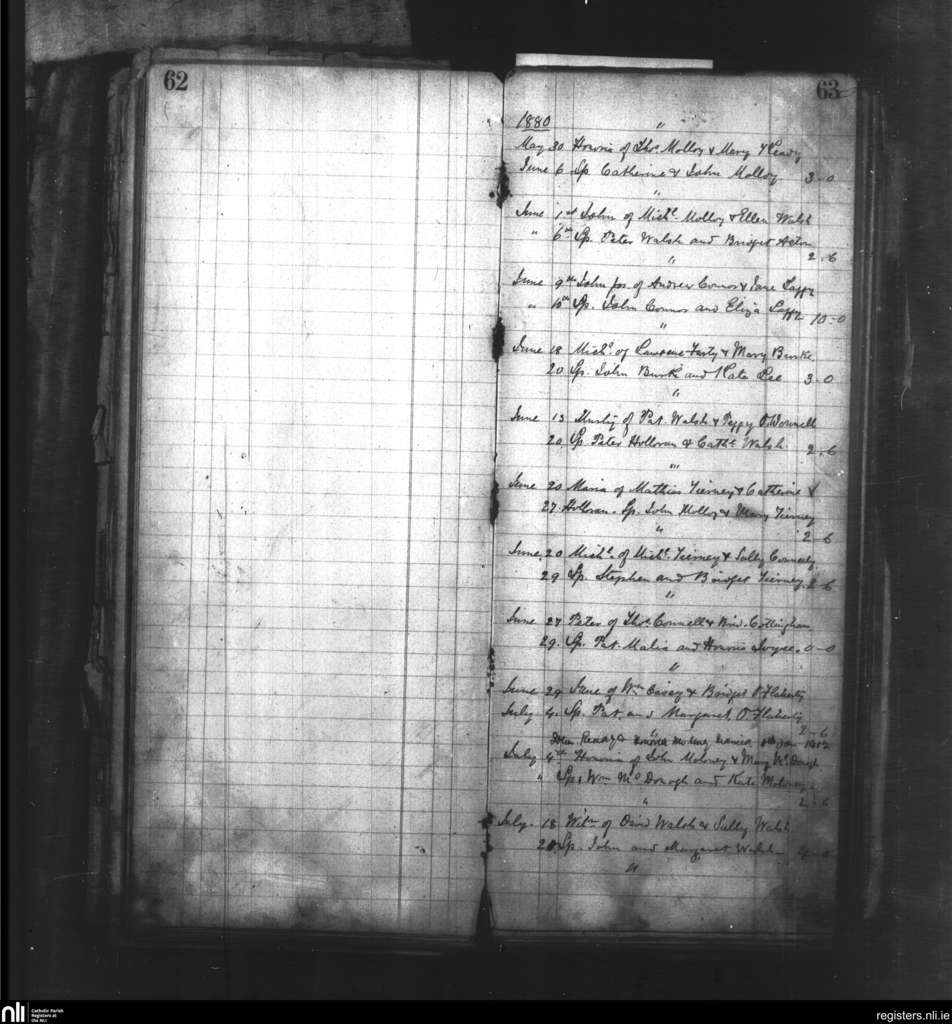 62
63
1880
"
May 30 Honoria of Thos Molloy & Mary
June 6 Sp. Catherine & John Molloy 3-0
"
June 1st John of Michl. Molloy & Ellen Walsh
" 6th Sp. Peter Walsh and Bridget Acton
2.6
"
June 9th John Jos of Andrew Connor & Jane
" 10th Sp. John Connor and Eliza 10-0
"
June 18 Michl. of Lawrence & Mary Burke
20 Sp. John Burke and Kate Lee 3-0
"
June 13 of Pat Walsh & Peggy O'Donnell
20 Sp. Peter Holloran & Cathe Walsh 2.6
"
June 20 Maria of Mathias Tierney & Catherine
27 Holloran. Sp. John Molloy & Mary Tierney
" 2-6
June 20 Michl. of Michl. Tierney & Sally
29 Sp. Stephen and Bridget Tierney. 2-6
"
June 27 Peter of Thos. Connell & Brid. Cottingham
29. Sp. Pat. Malia and Honoria Joyce. 0-0
"
June 29 Jane of Wm Casey & Bridget O'Flaherty
July 4. Sp. Pat. and Margaret O'Flaherty
2-6
Honoria married 1912
July 4th Honoria of John Moloney & Mary McDonogh
" Sp. Wm McDonogh and Kate Moloney.
" 2.6
July. 18 of David Walsh & Sally Walsh
Sp. John and Margaret Walsh
"
nli
Catholic Parish
Registers at
the NLI
registers.nli.ie